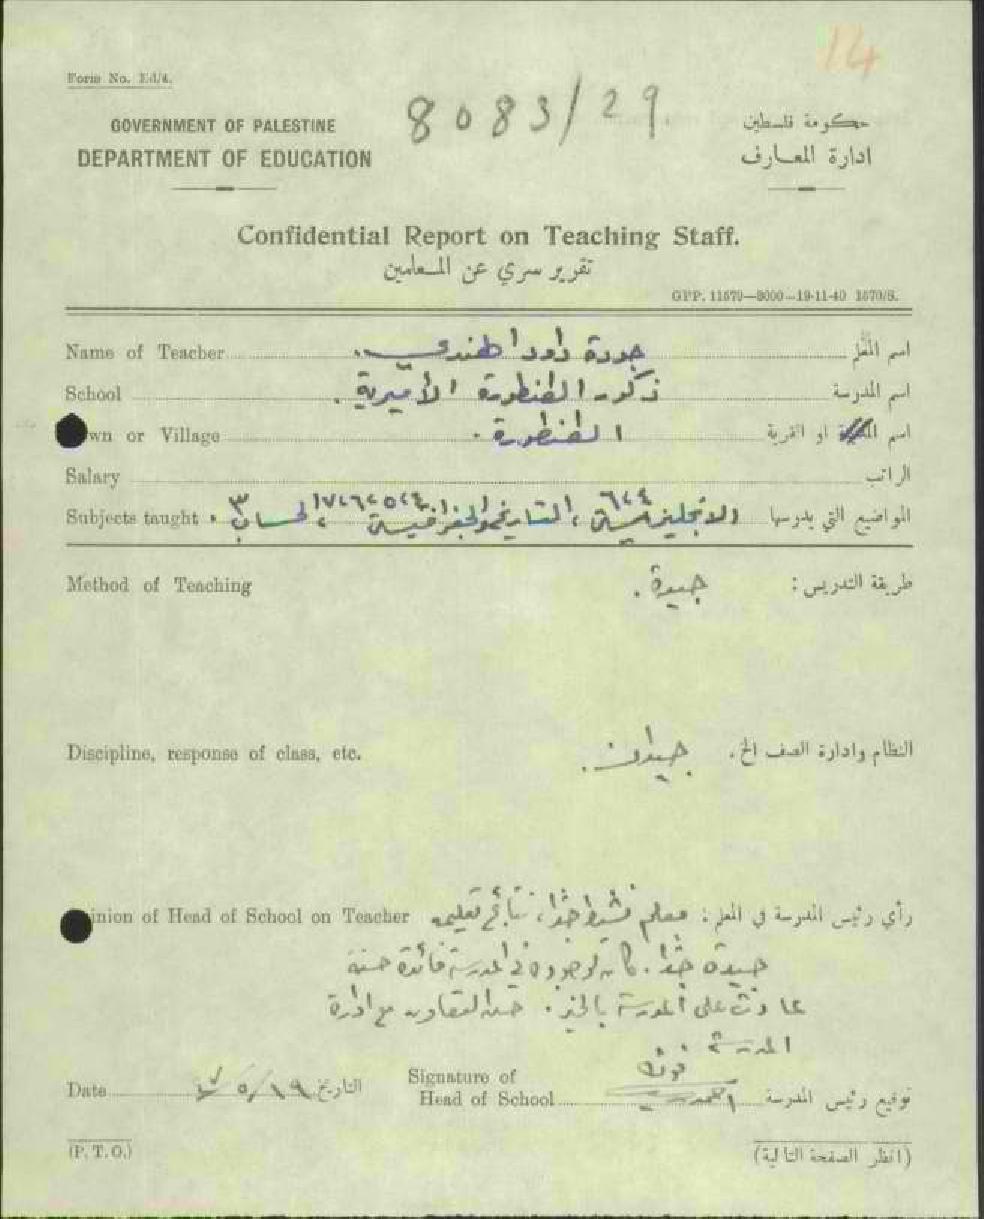 14
Form No. Ed/4.
8083/29
GOVERNMENT OF PALESTINE
DEPARTMENT OF EDUCATION
حكومة فلسطين
ادارة المعارف
Confidential Report on Teaching Staff.
تقرير سري عن المعلمين
GPP. 11579—8000—19-11-40 1570/S.
Name of Teacher جودة داود الهندي. اسم المعلم
School ذكور الطنطورة الأميرية. اسم المدرسة
wn or Village الطنطورة. اسم المدينة او القرية
Salary الراتب
Subjects taught الانجليزية ٤،٦، التاريخ والجغرافية ٤،٥،٦،٧، الحساب ٣. المواضيع التي يدرسها
Method of Teaching جيدة. طريقة التدريس:
Discipline, response of class, etc. جيدان. النظام وادارة الصف الخ.
inion of Head of School on Teacher معلم نشيط جدا، نتائج تعليمه رأي رئيس المدرسة في المعلم:
جيدة جدا. كان لوجوده في المدرسة فائدة حسنة
عادت على المدرسة بالخير. حسن التعاون مع ادارة
المدرسة.
Date ١٩/٥/ التاريخ
Signature of
Head of School توقيع رئيس المدرسة
(P. T. O.) (انظر الصفحة التالية)